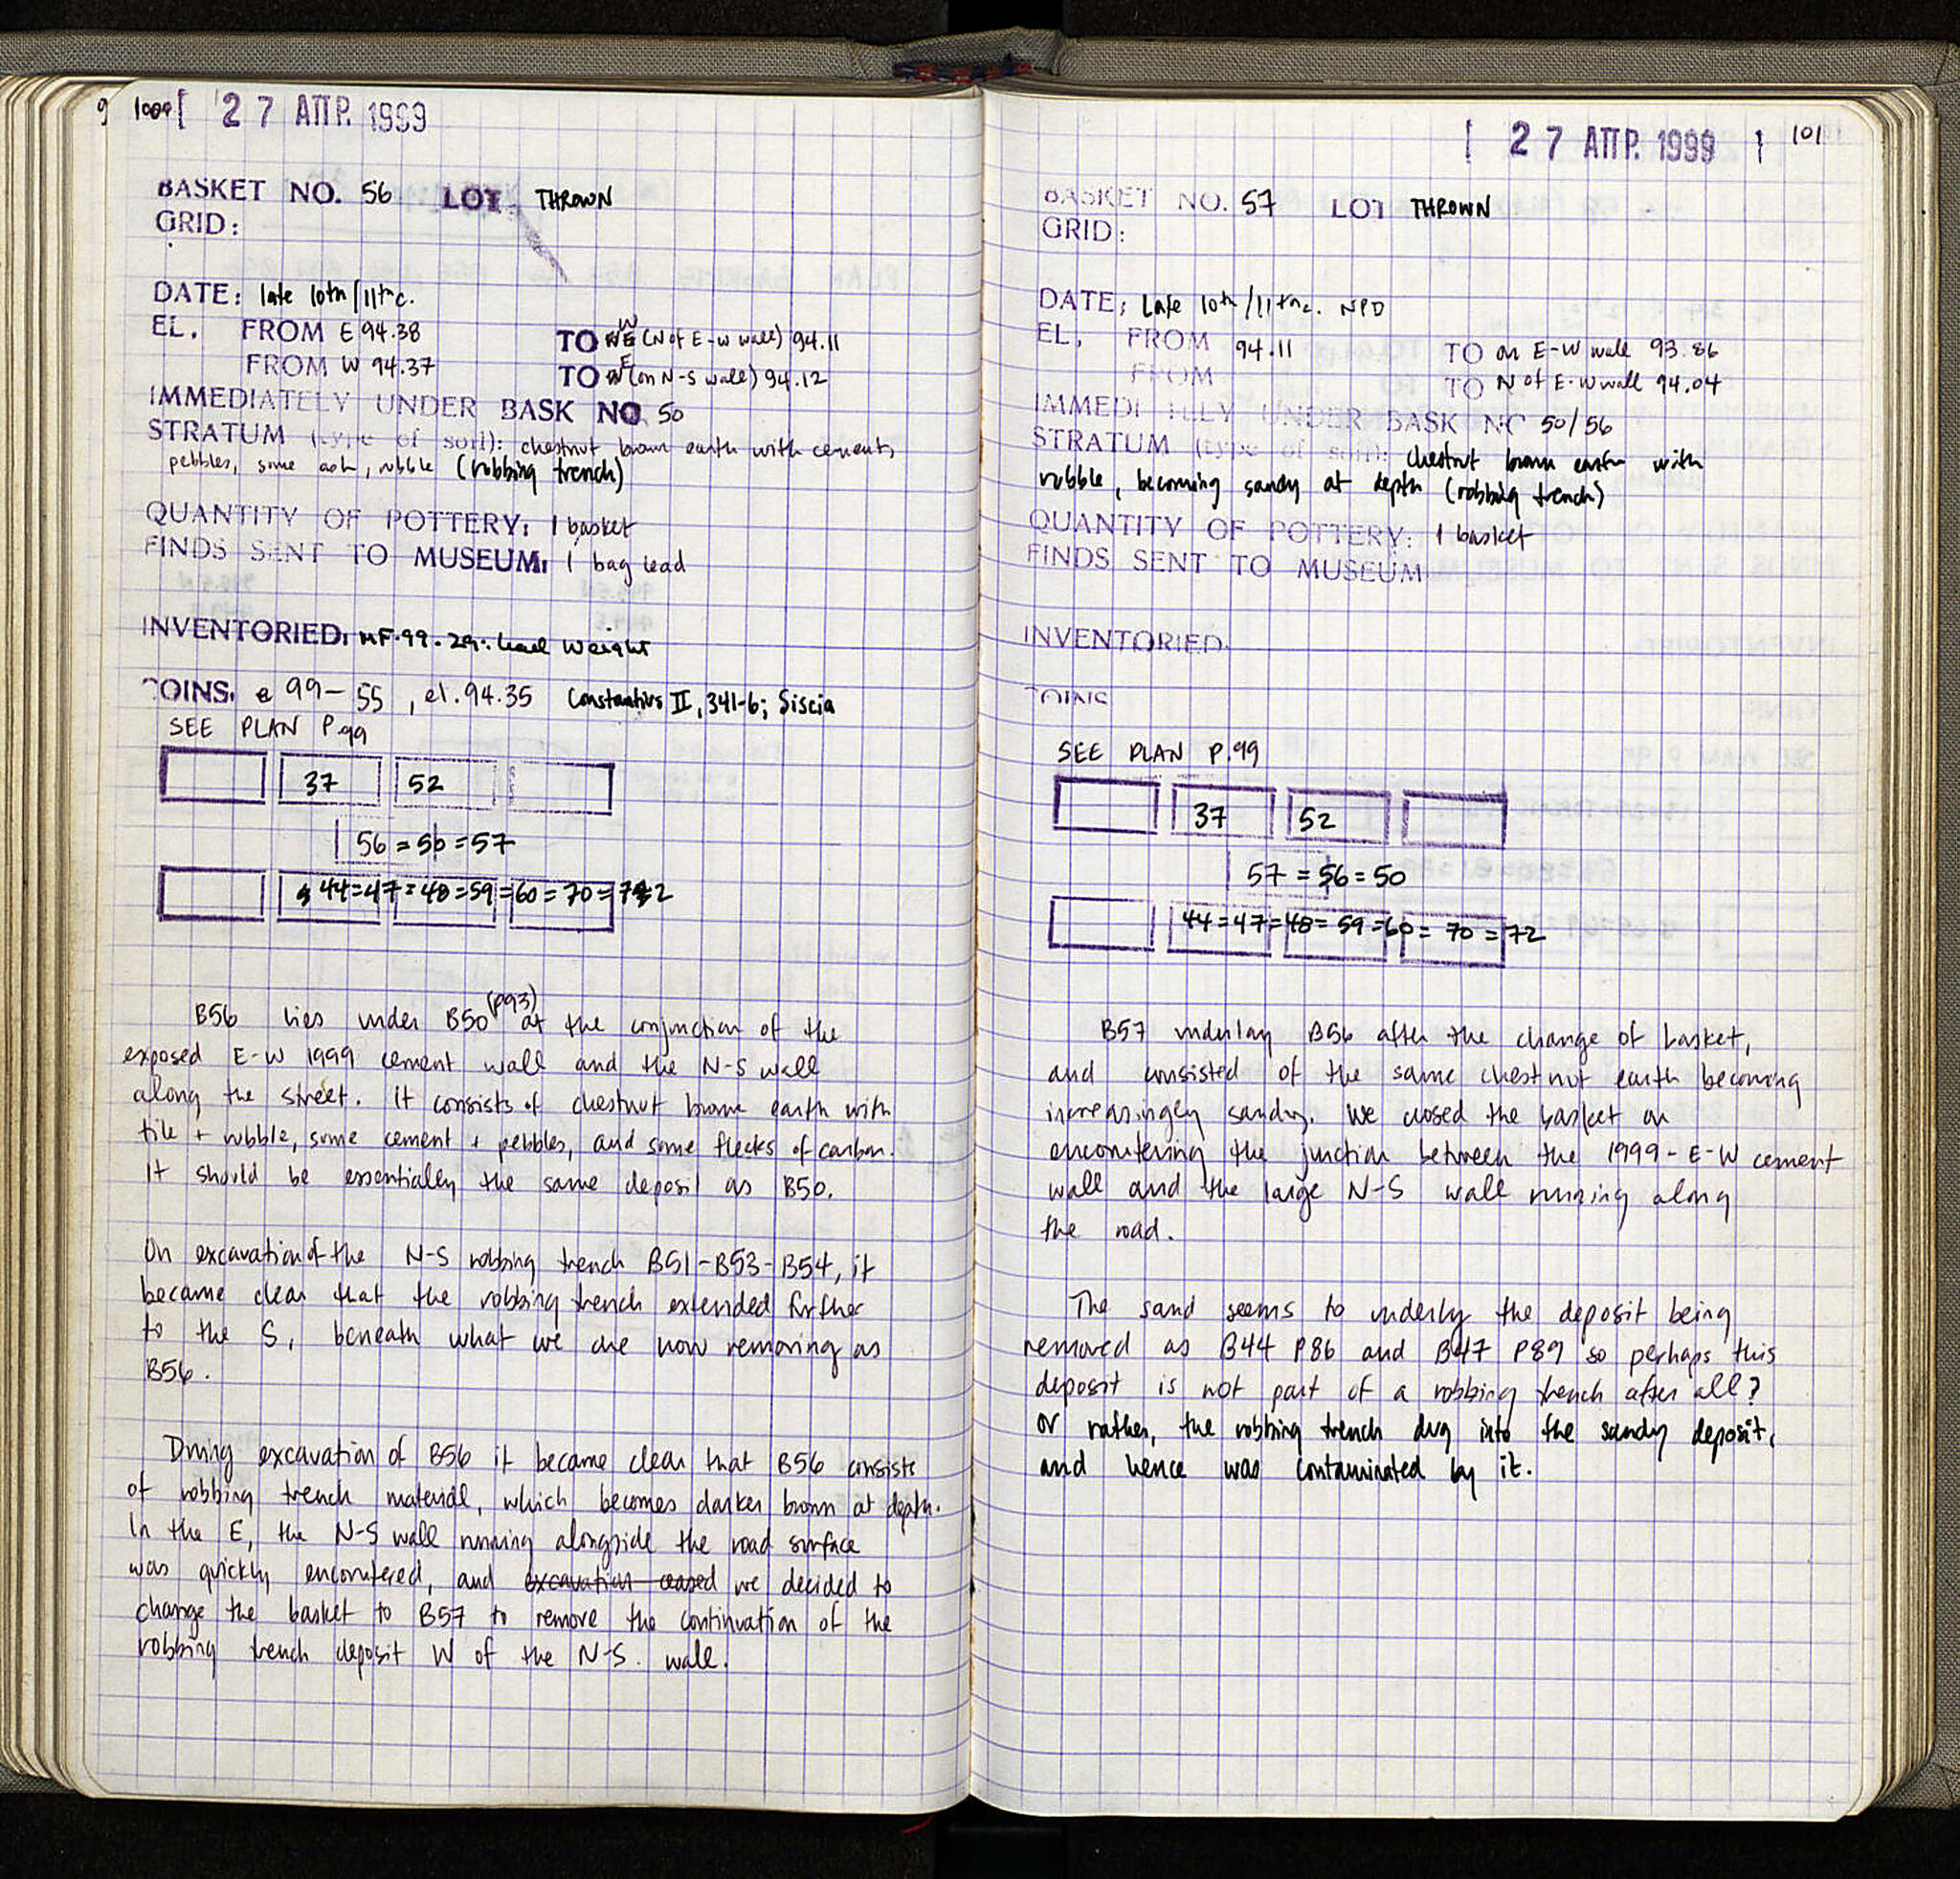 100
27 ΑΠΡ. 1999
BASKET NO. 56 LOT THROWN
GRID:
DATE: late 10th/11th c.
EL. FROM E 94.38 TO W (N of E-W wall) 94.11
FROM W 94.37 TO E (on N-S wall) 94.12
IMMEDIATELY UNDER BASK NO 50
STRATUM (type of soil): chestnut brown earth with cement,
pebbles, some ash, rubble (robbing trench)
QUANTITY OF POTTERY: 1 basket
FINDS SENT TO MUSEUM: 1 bag lead
INVENTORIED: MF.99.29: lead weight
COINS. 99-55, el. 94.35 Constantius II, 341-6; Siscia
SEE PLAN P.99
37 52
56 = 50 = 57
44=47=48=59=60=70=72
B56 lies under B50 (p93) at the conjunction of the
exposed E-W 1999 cement wall and the N-S wall
along the street. It consists of chestnut brown earth with
tile + rubble, some cement + pebbles, and some flecks of carbon.
It should be essentially the same deposit as B50.
On excavation of the N-S robbing trench B51-B53-B54, it
became clear that the robbing trench extended further
to the S, beneath what we are now removing as
B56.
During excavation of B56 it became clear that B56 consists
of robbing trench material, which becomes darker brown at depth.
In the E, the N-S wall running alongside the road surface
was quickly encountered, and excavation ceased we decided to
change the basket to B57 to remove the continuation of the
robbing trench deposit W of the N-S. wall.
27 ΑΠΡ. 1999
101
BASKET NO. 57 LOT THROWN
GRID:
DATE: Late 10th/11th c. NPD
EL. FROM 94.11 TO on E-W wall 93.86
FROM TO N of E-W wall 94.04
IMMEDIATELY UNDER BASK NO 50/56
STRATUM (type of soil): chestnut brown earth with
rubble, becoming sandy at depth (robbing trench)
QUANTITY OF POTTERY: 1 basket
FINDS SENT TO MUSEUM
INVENTORIED.
COINS
SEE PLAN P.99
37 52
57 = 56 = 50
44=47=48=59=60=70=72
B57 underlay B56 after the change of basket,
and consisted of the same chestnut earth becoming
increasingly sandy. We closed the basket on
encountering the junction between the 1999-E-W cement
wall and the large N-S wall running along
the road.
The sand seems to underly the deposit being
removed as B44 P86 and B47 P89 so perhaps this
deposit is not part of a robbing trench after all?
or rather, the robbing trench dug into the sandy deposit,
and hence was contaminated by it.